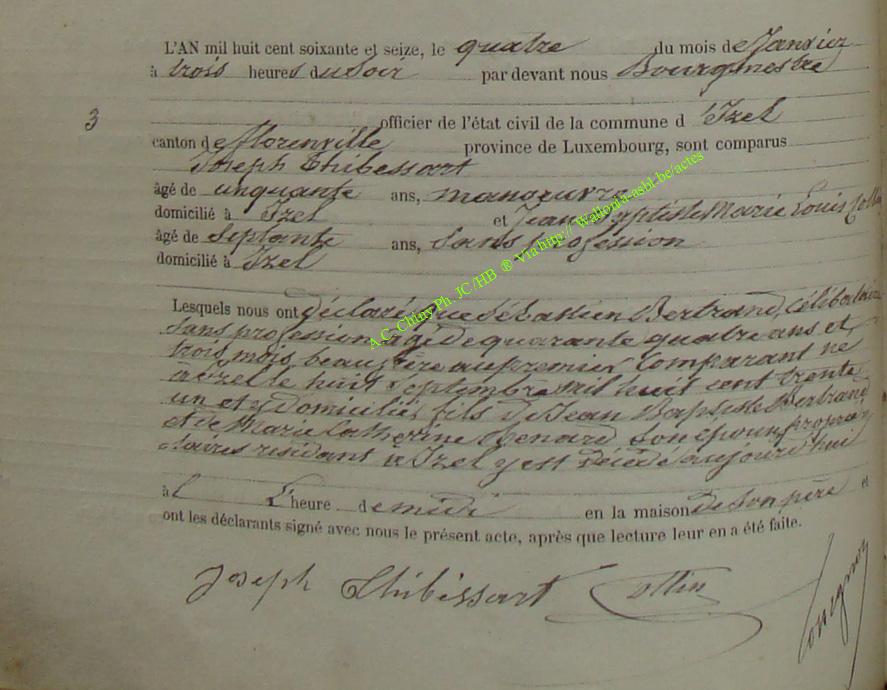 L'AN mil huit cent soixante et seize, le quatre du mois de Janvier
à trois heures du Soir par devant nous Bourgmestre
3 officier de l'état civil de la commune d 'Izel
canton de florenville province de Luxembourg, sont comparus
Joseph Thibessart
âgé de cinquante ans, manoeuvre
domicilié à Izel et Jean Baptiste Marie Louis Collin
âgé de Septante ans, Sans profession
domicilié à Izel
Lesquels nous ont déclaré que Sébastien Bertrand, célibataire
sans profession agé de quarante quatre ans et
trois mois, beau frère au premier Comparant né
à Izel le huit Septembre mil huit cent trente
un et y domicilié, fils de Jean Baptiste Bertrand
et de Marie Catherine son époux propri
étaires résidant à Izel y est décédé aujourd'hui
à l L'heure de midi en la maison de Son père et
ont les déclarants signé avec nous le présent acte, après que lecture leur en a été faite.
Joseph Thibéssart Collin
A.C. Chiny Ph. JC/HB ® Via http://Wallonia-asbl.be/actes